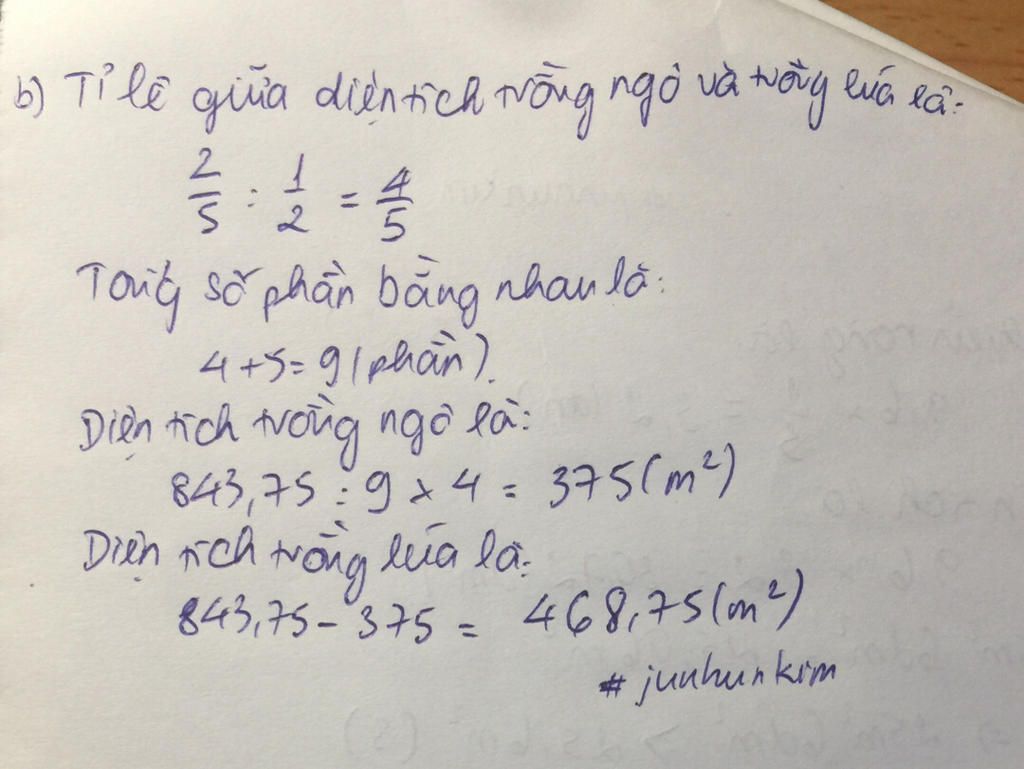 b) Tỉ lệ giữa diện tích trồng ngô và trồng lúa là:
2/5 : 1/2 = 4/5
Tổng số phần bằng nhau là:
4+5=9(phần).
Diện tích trồng ngô là:
843,75 : 9 x 4 = 375(m²)
Diện tích trồng lúa là:
843,75 - 375 = 468,75(m²)
# junhunkim